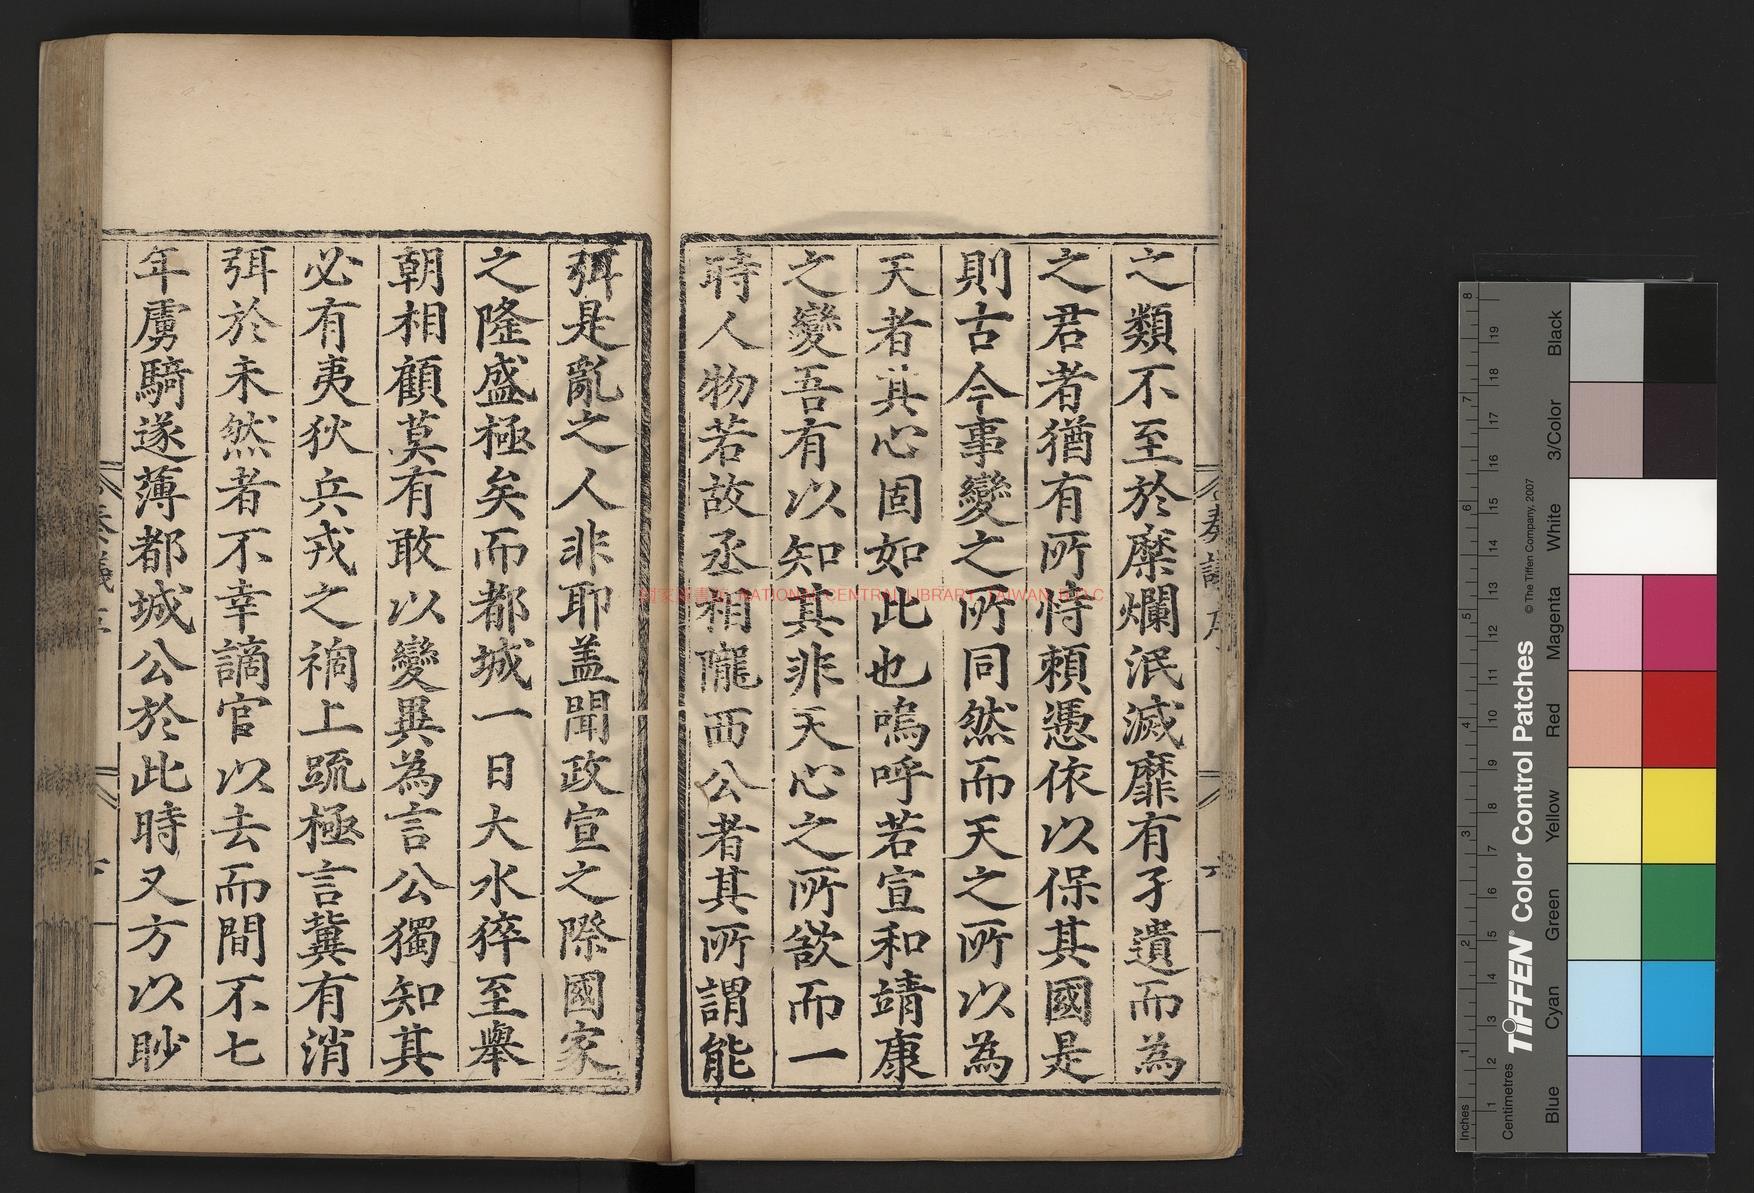 之類不至於糜爛泯滅靡有孑遺而為
之君者猶有所恃賴憑依以保其國是
則古今事變之所同然而天之所以為
天者其心固如此也嗚呼若宣和靖康
之變吾有以知其非天心之所欲而一
時人物若故丞相隴西公者其所謂能
弭是亂之人非耶蓋聞政宣之際國家
之隆盛極矣而都城一日大水猝至舉
朝相顧莫有敢以變異為言公獨知其
必有夷狄兵戎之禍上疏極言冀有消
弭於未然者不幸謫官以去而間不七
年虜騎遂薄都城公於此時又方以眇
國家圖書館 NATIONAL CENTRAL LIBRARY, TAIWAN, R.O.C
Inches
Centimetres
TIFFEN® Color Control Patches
© The Tiffen Company, 2007
Blue
Cyan
Green
Yellow
Red
Magenta
White
3/Color
Black
1 2 3 4 5 6 7 8
1 2 3 4 5 6 7 8 9 10 11 12 13 14 15 16 17 18 19